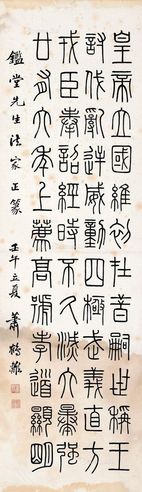 皇帝立國維初在昔嗣世稱王
討伐亂逆威動四極武義直方
戎臣奉詔經時不久滅六暴強
廿有六年上薦高號孝道顯明
鑑堂先生法家正篆 壬午立夏 蕭鶴